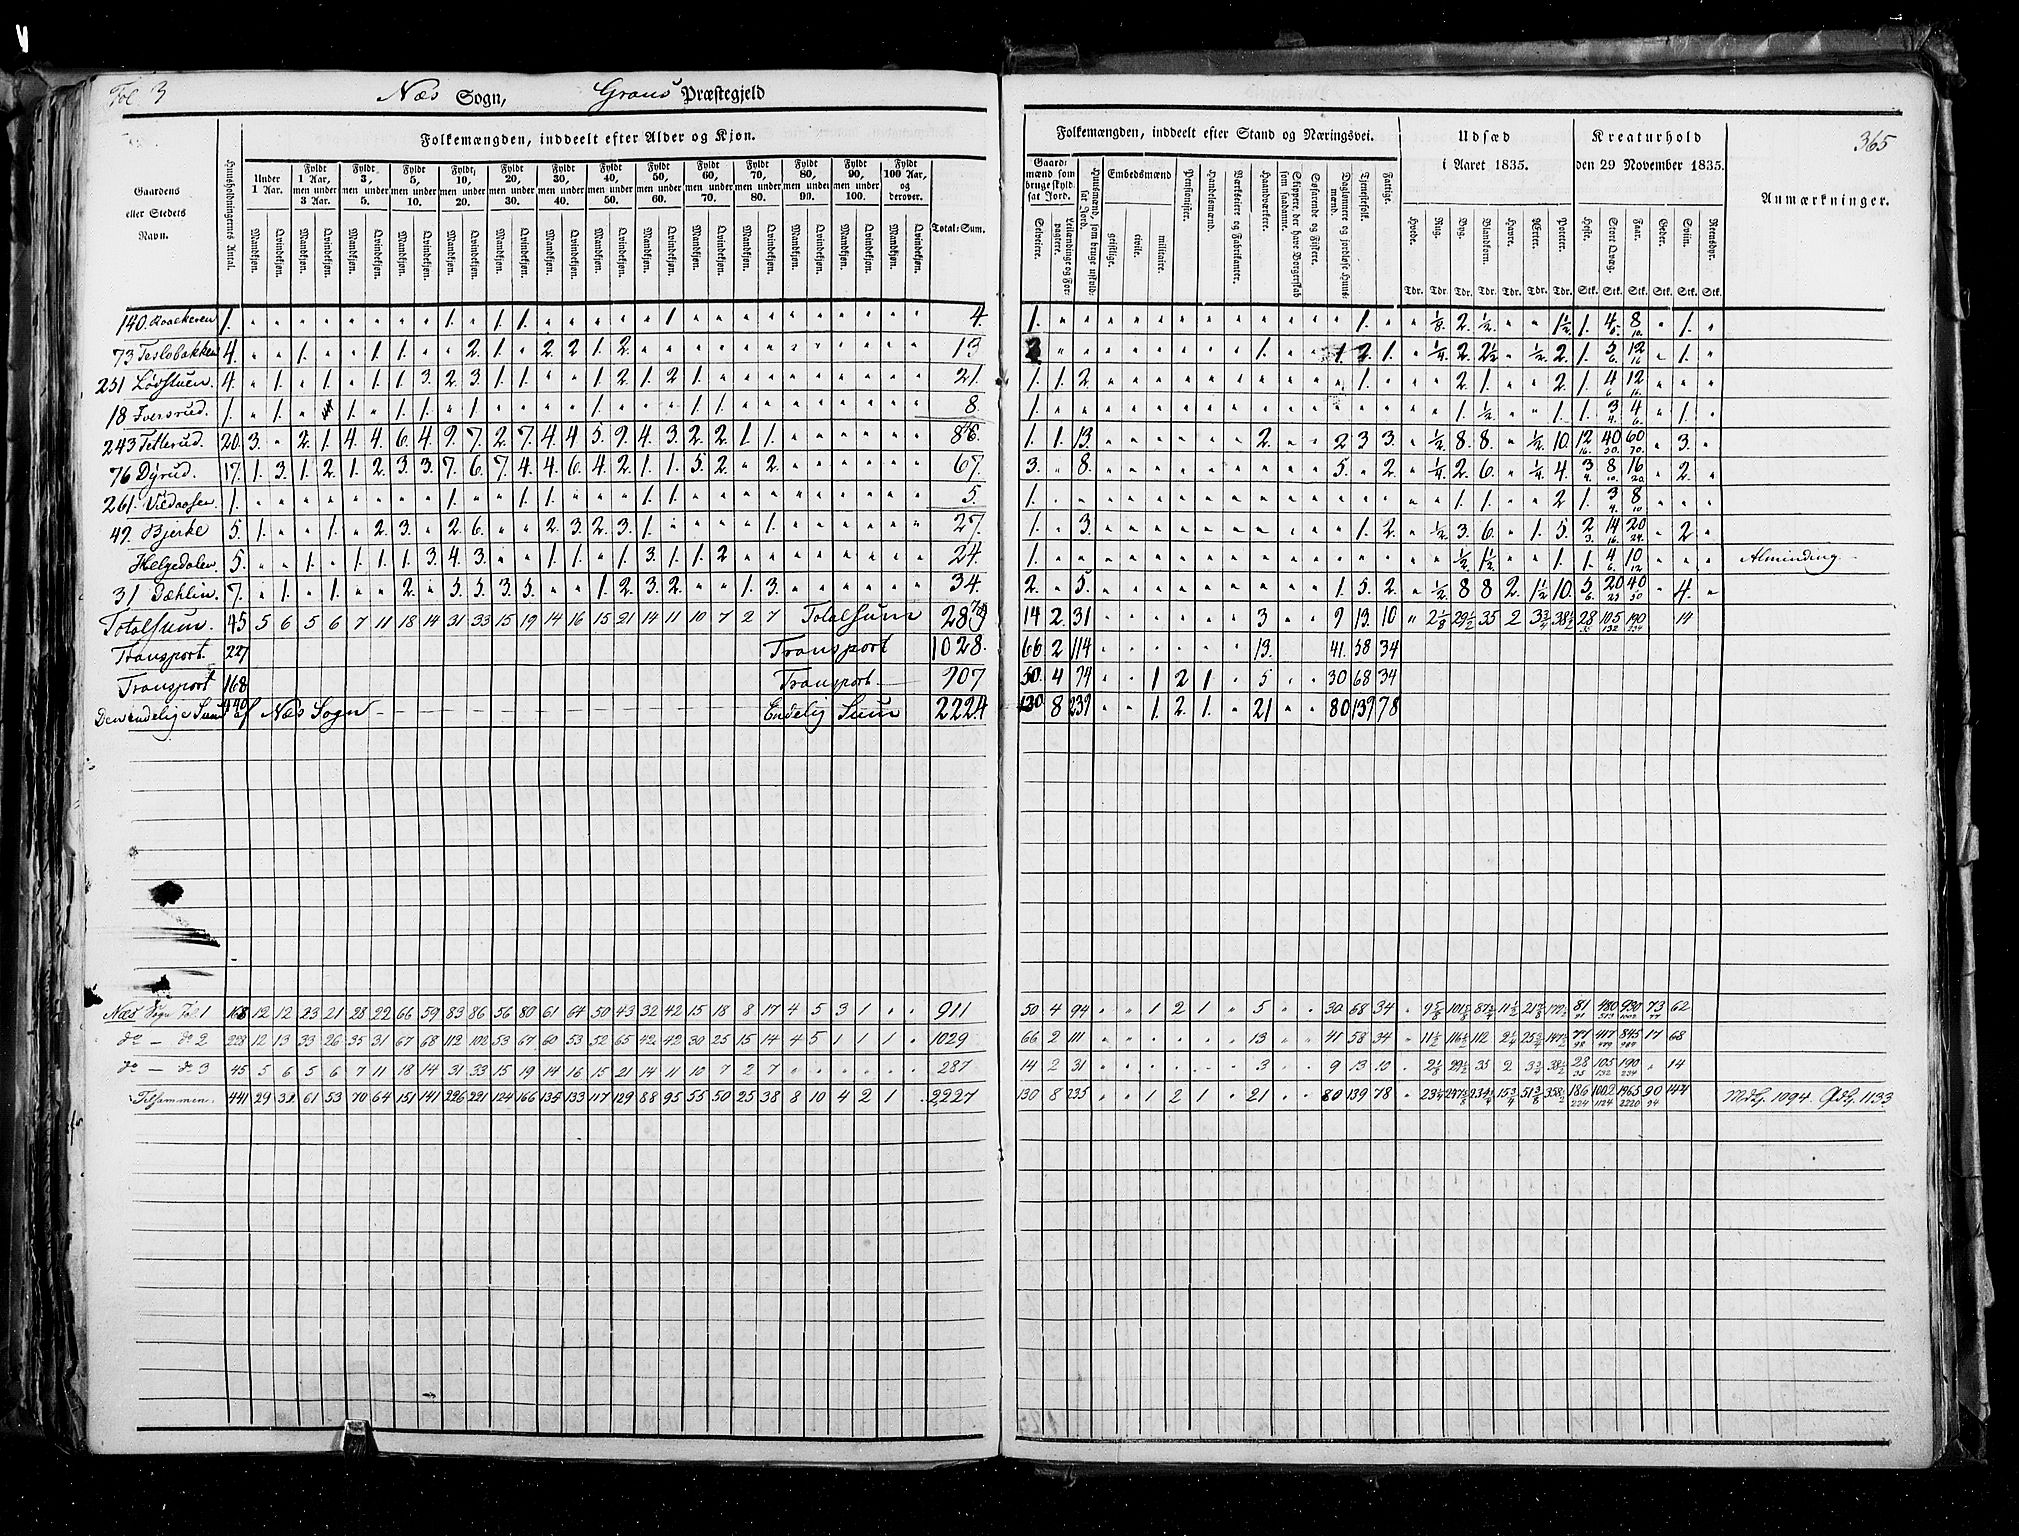 Fol 3
Næs Sogn, Grans Præstegjeld
365
Gaardens eller Stedets Navn.
Huusholdningernes Antal.
Folkemængden, inddeelt efter Alder og Kjøn.
Under 1 Aar. Fyldt 1 Aar, men under 3 Aar. Fyldt 3, men under 5. Fyldt 5, men under 10. Fyldt 10, men under 20. Fyldt 20, men under 30. Fyldt 30, men under 40. Fyldt 40, men under 50. Fyldt 50, men under 60. Fyldt 60, men under 70. Fyldt 70, men under 80. Fyldt 80, men under 90. Fyldt 90, men under 100. Fyldt 100 Aar, og derover. Total-Sum.
Mandkjøn. Qvindekjøn.
Folkemængden, inddeelt efter Stand og Næringsvei.
Gaardmænd som bruge skyldsat Jord. Selveiere. Leilændinge og Forpagtere. Huusmænd, som bruge uskyldsat Jord. Embedsmænd geistlige. civile. militaire. Pensionister. Handelsmænd. Værkseiere og Fabrikanter. Haandværkere. Skippere, der have Borgerskab som saadanne. Søfarende og Fiskere. Daglønnere og jordløse Huusmænd. Tjenestefolk. Fattige.
Udsæd i Aaret 1835.
Hvede. Rug. Byg. Blandkorn. Havre. Ærter. Poteter.
Tdr. Tdr. Tdr. Tdr. Tdr. Tdr. Tdr.
Kreaturhold den 29 November 1835.
Heste. Stort Qvæg. Faar. Geder. Sviin. Reensdyr.
Stk. Stk. Stk. Stk. Stk. Stk.
Anmærkninger.
140. 1. 1. 1. 1. 1. 4. 1. 1. 1/8 2. 1/2 1 1/2 1. 4 8 1.
73 Teslobakken 4. 1. 1. 1. 2. 1. 2 2 1. 2. 13 1. 1 2. 1. 1/4 2. 2 1/2 1/2 2. 1. 5 12 1.
251 Lövstuen 4. 1. 1. 1. 1. 3. 2. 3. 1. 1. 1. 2. 1. 2. 1. 21. 1. 1. 2. 1. 2. 1. 2. 1. 4 12
18 Iversrud. 1. 1. 1. 1. 1. 1. 1. 1. 1. 8. 1. 1. 1/2 1. 1. 3 4 1.
243 Tetterud. 20. 3. 2. 1. 4. 4. 6. 4. 9. 7. 2. 7. 4. 4. 5. 9. 4. 3. 2. 2. 1. 1. 86. 1. 1. 13. 2. 2 3 3. 1/2 8. 8. 1/2 10. 12 40 60 3.
76 Dyrud. 17. 1. 3. 1. 2. 1. 2. 3. 3. 7. 6. 7. 4. 4. 6. 4. 2. 1. 1. 5. 2. 2. 67. 3. 8. 5. 2. 1/4 2. 6. 1/4 4. 3 8 16 2.
261. Vildaasen 1. 1. 1. 1. 1. 1. 5. 1. 1. 1. 2 1. 3 8
49. Bjerke 5. 1. 1. 2. 3. 2. 6. 2. 3. 2. 3. 1. 1. 27. 1. 3. 1. 2. 1/2 3. 6. 1. 5. 2 14 20 2
Helgedalen 5. 1. 1. 1. 1. 3. 4. 3. 1. 1. 1. 3. 1. 1. 2 24. 1. 1/2 1 1/2 1. 1. 4 10 Alminding
31 Dæhlin. 7. 1. 1. 2. 5. 5. 3. 5. 1. 2. 3. 2. 1. 3. 34. 2. 5. 1. 5. 2. 1/2 8 8 2. 1 1/2 10. 5 20 40 4.
Totalsum. 45 5 6 5 6 7 11 18 14 31 33 15 19 14 16 15 21 14 11 10 7 2 7 Totalsum 287 14 2. 31 3 9 13. 10 2 1/8 29 1/2 35 2 3 3/4 38 1/2 28 105 190 14
Transport. 227 Transport 1028. 66 2 114 13. 41. 58 34
Transport 168 Transport 907 50. 4 94 1 2 1 5 30 68 34
Den endelige Sum 440 af Næs Sogn Endelig Sum 2224 130 8 239 1. 2. 1. 21 80 139 78
Næs Sogn Fol 1 168 12 12 23 21 28 22 66 59 83 86 56 80 61 64 50 43 32 42 15 18 8 17 4 5 3 1 911 50 4 94 1 2 1 5 30 68 34 81 480 930 73 62
do - do 2 228 12 13 33 26 35 31 67 68 112 102 53 67 60 53 52 65 42 42 30 25 15 14 4 5 1 1 1 1029 66 2 111 13 41 58 34 112 77 417 845 17 68
do - do 3 45 5 6 5 6 7 11 18 14 31 33 15 19 14 16 15 21 14 11 10 7 2 7 287 14 2 31 3 9 13 10 2 1/8 29 1/2 35 2 3 3/4 38 1/2 28 105 190 14
Tilsammen. 441 29 31 61 53 70 64 151 141 226 221 124 166 135 133 117 129 88 95 55 50 25 38 8 10 4 2 1 2227 130 8 235 1 2 1 21 80 139 78 186 1002 1965 90 144 Mdkj. 1094. Qdkj. 1133